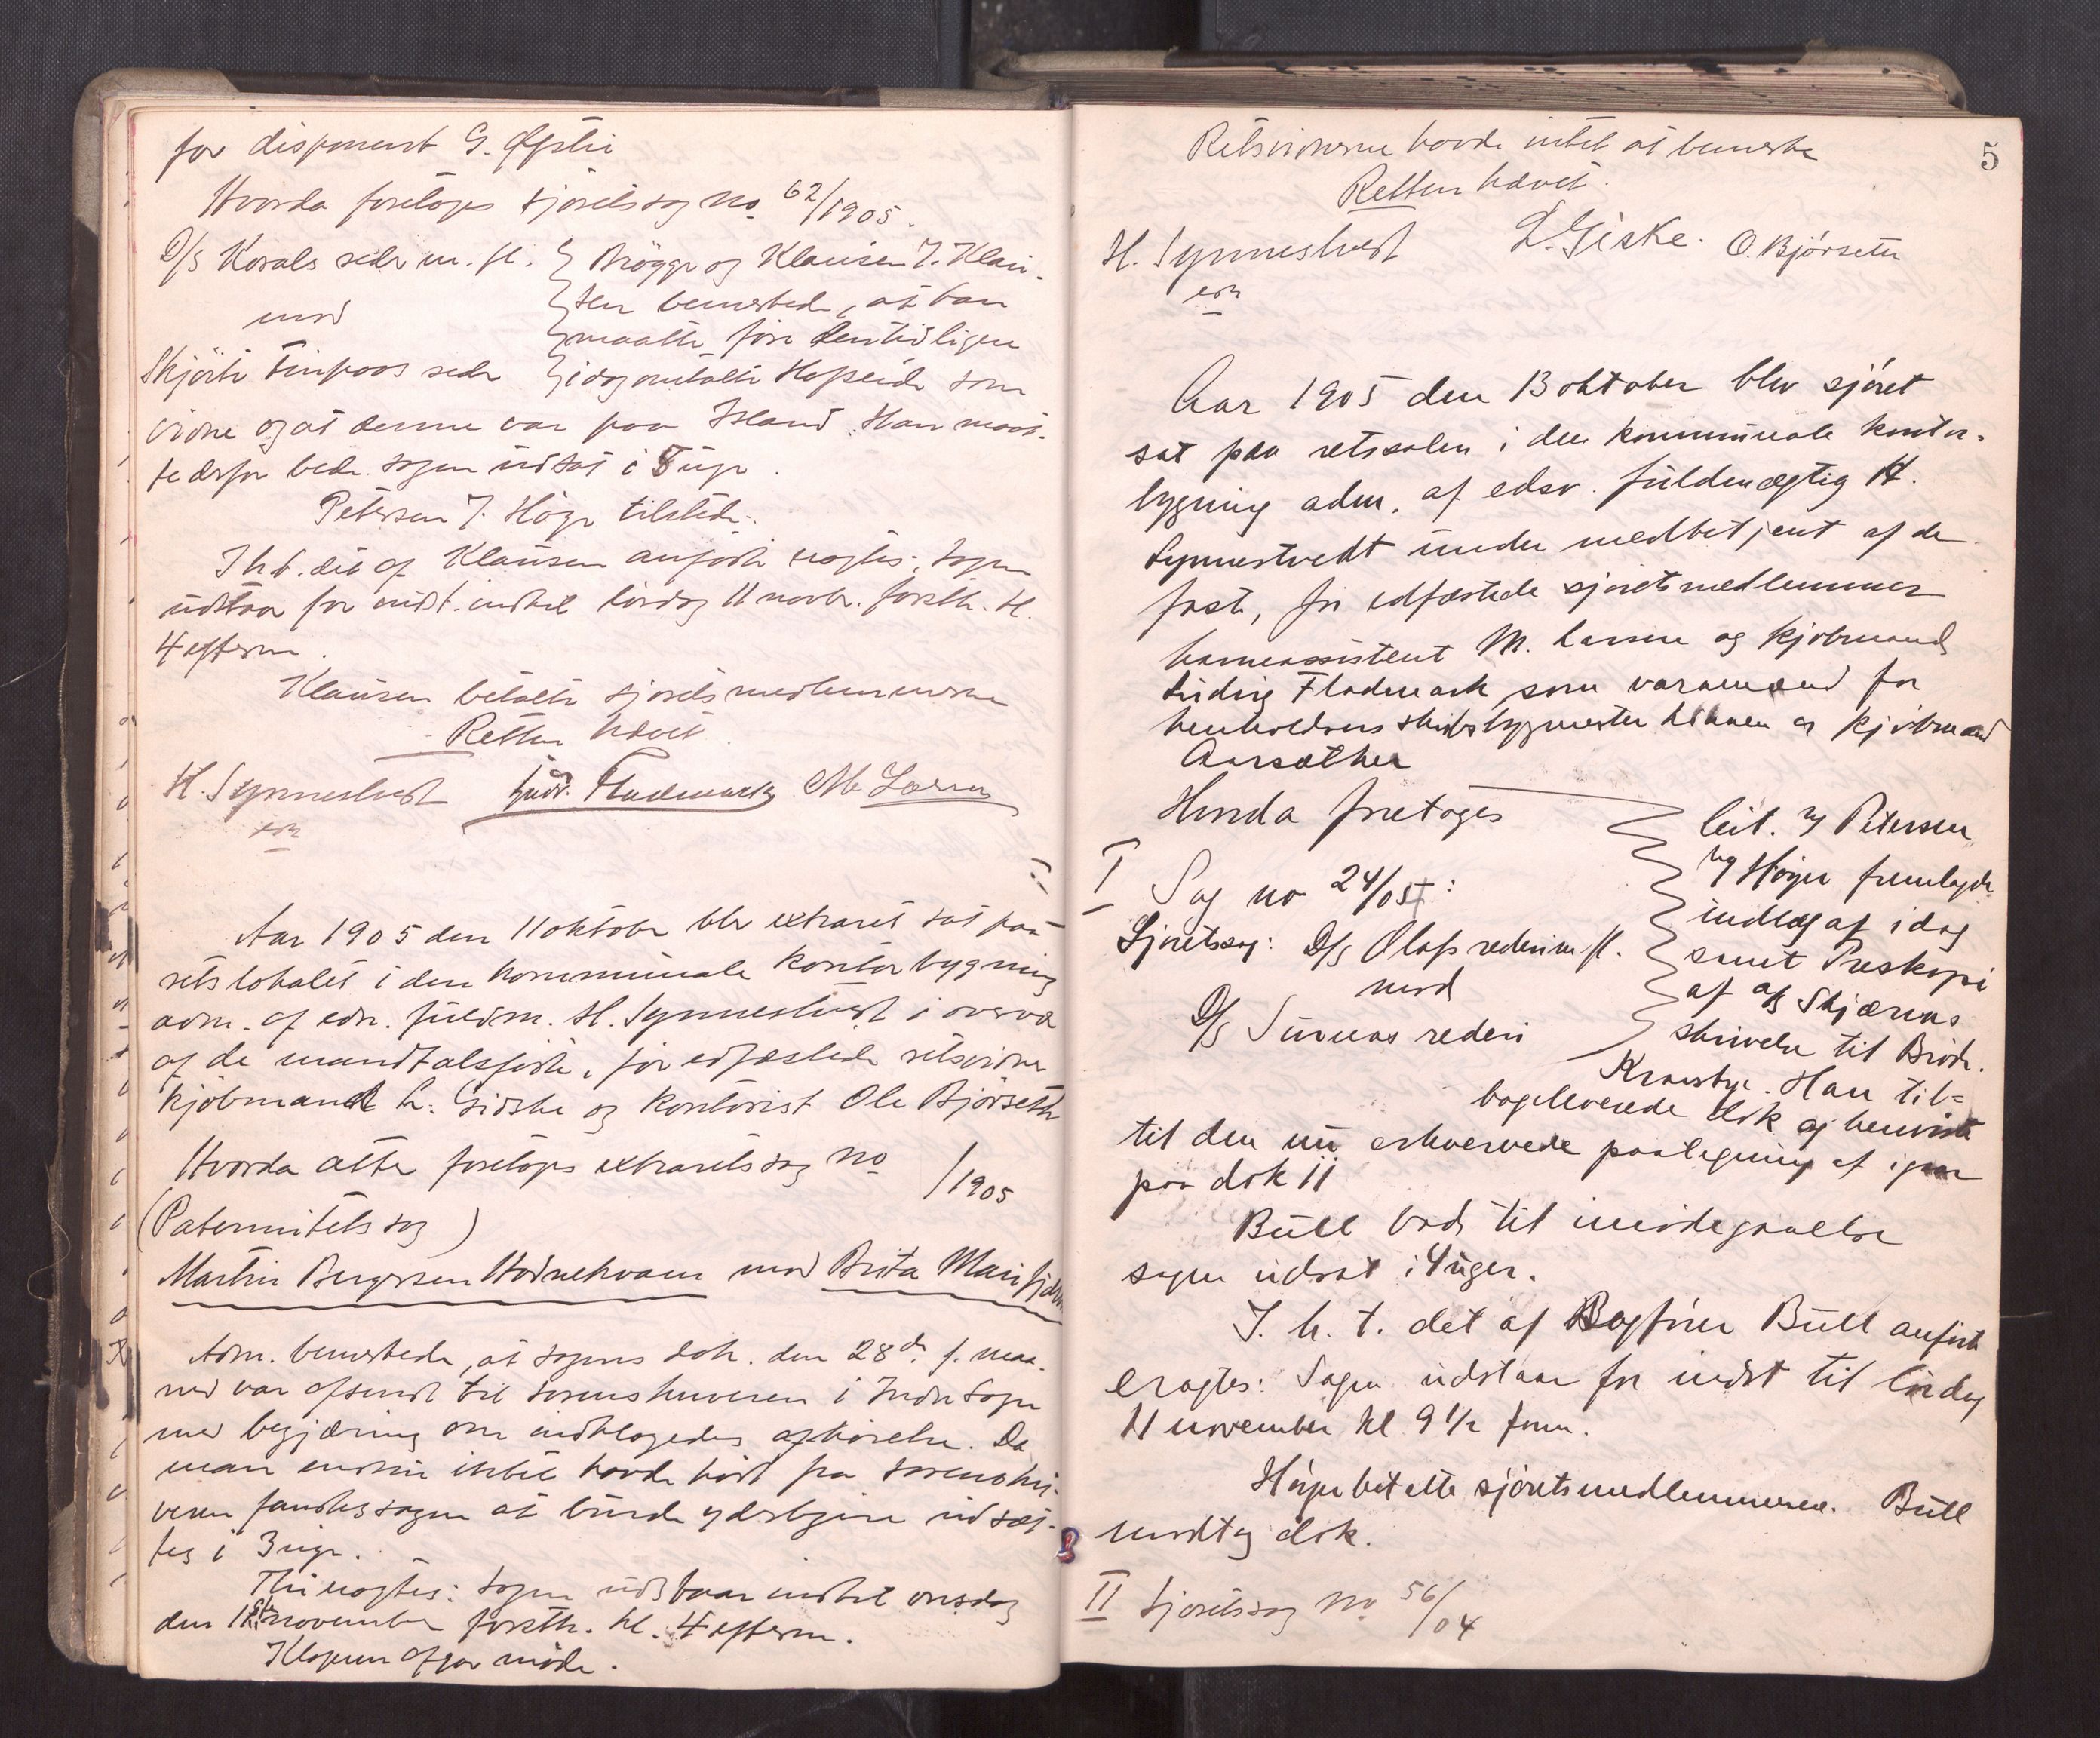 for disponent G.
Hvorda foretoges sjöretssag no 62/1905.
D/S Korals rederi m. fl.
mod
Skjöite Finpaas rederi
Brögge og Klausen v. Klau-
sen bemerkede, at han
maatte före den tidligere
idag omtalte Hopseide som
vidne og at denne var paa Island. Han maat-
te derfor bede sagen udsat i 5 uger.
Petersen v. Höge tilstede.
I h. t. det af Klausen anförte eragtes: Sagen
udstaar for indst. indtil lördag 11 novbr. förstk. kl.
4 efterm.
Klausen betalte sjöretsmedlemmerne
Retten hævet.
H. Synnestvedt Ludv. Flademark M. Larsen
edsv
Aar 1905 den 11 oktober blev extraret sat paa
retslokalet i den kommunale kontorbygning
adm. af edsv. fuldm. H. Synnestvedt i overvær
af de mandtalsförte, för edfæstede retsvidner
kjöbmand L. Gidske og kontorist Ole Björseth
Hvorda atter foretoges extraretssag no /1905
(Paternitetssag)
Martin Bergersen Hodnekvam mod Brita Mari
Adm. bemerkede, at sagens dok. den 28de f. maa-
ned var afsendt til sorenskriveren i Indre Sogn
med begjæring om indklagedes afhörelse. Da
man endnu intet havde hört fra sorenskri-
veren fandtes sagen at burde yderligere udsæt-
tes i 3 uger.
Thi eragtes: Sagen udstaar indtil onsdag
den 1ste november förstk. kl. 4 efterm.
Klageren afgav möde.
5
Retsvidnerne havde intet at bemerke
Retten hævet.
H. Synnestvedt L. Giske. O. Björseter
edsv
Aar 1905 den 13 oktober blev sjöret
sat paa retssalen i den kommunale kontor-
bygning adm. af edsv. fuldmægtig H.
Synnestvedt under medbetjent af de
faste, för edfæstede sjöretsmedlemmer
havneassistent M. Larsen og kjöbmand
Ludvig Flademark som varamænd for
henholdsvis skibsbygmester og kjöbmand
Aarsæther
Hvorda foretoges
I Sag no 24/05:
Sjöretssag: D/S Olafs rederi m fl.
mod
D/S Sunnas rederi
Cit. v Petersen
v Höyer fremlagde
indlæg af idag
samt Preskopi
af a/s Skjærnas
skrivelse til Brödr.
Kransbye. Han til-
bageleverede dok og henviste
til den nu erhvervede paategning af igaar
paa dok 11
Bull bad til imödegaaelse
sagen udsat i 4 uger.
I. h. t. det af Sagförer Bull anförte
eragtes: Sagen udstaar for indst til lördag
11 november kl 9 1/2 form.
Höyer betalte sjöretsmedlemmerne. Bull
modtog dok.
II Sjöretssag no 56/04